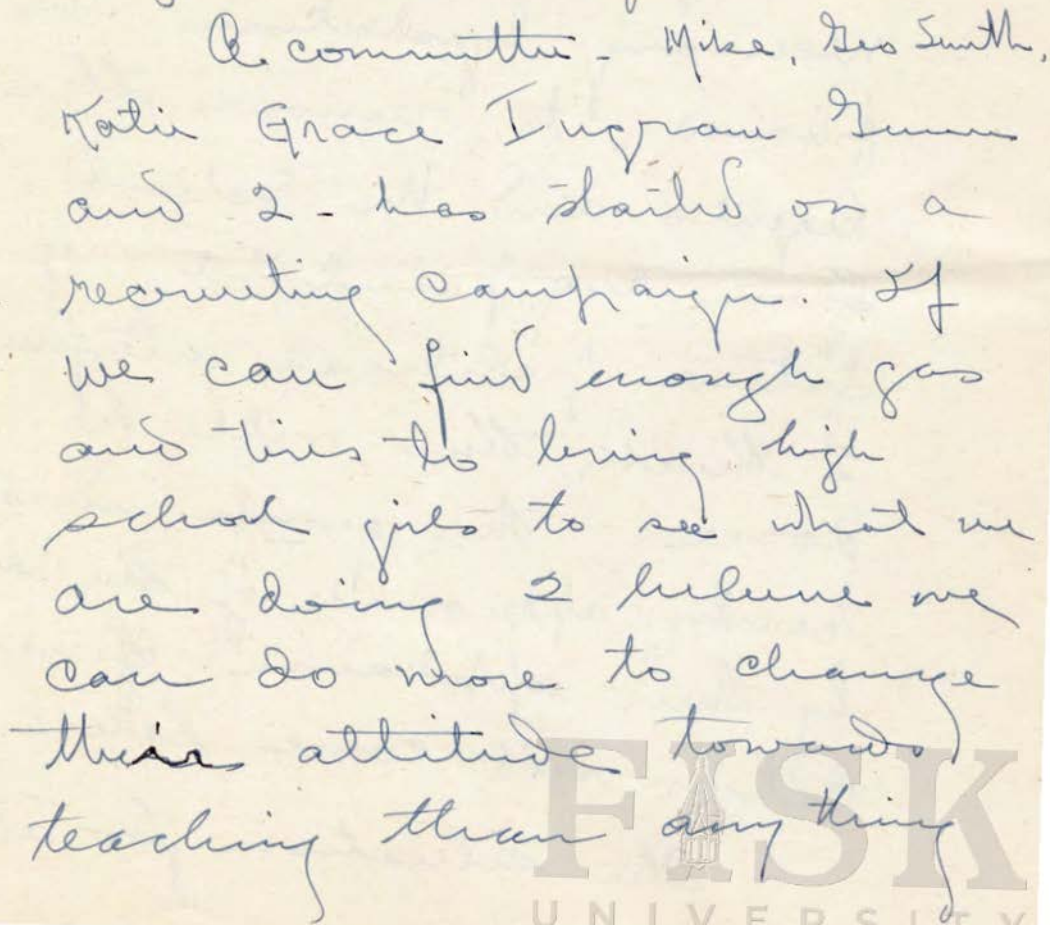 A committee - Mike, Geo Smith,
Katie Grace Ingram Gunn
and I - has started on a
recruiting campaign. If
we can find enough gas
and tires to bring high
school girls to see what we
are doing I believe we
can do more to change
their attitude towards
teaching than any thing
FISK
UNIVERSITY